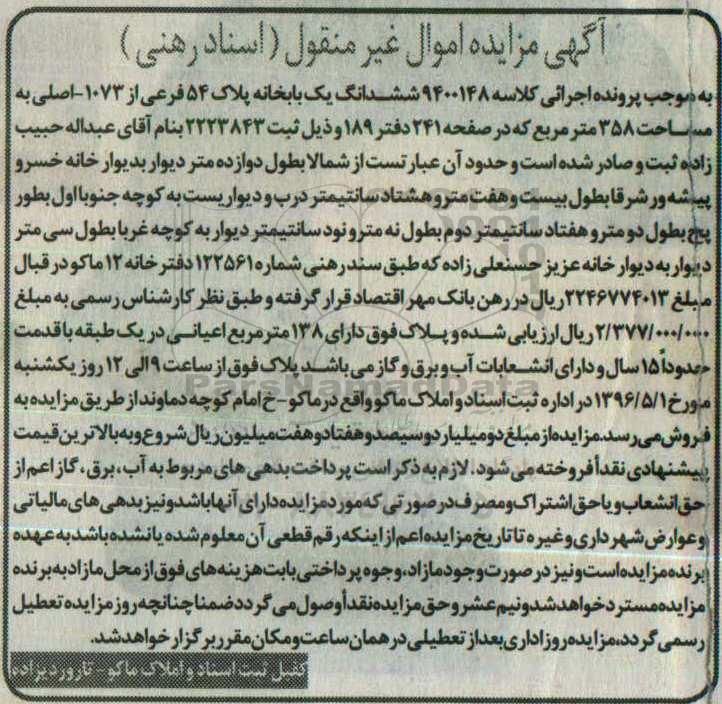 آگهی مزایده اموال غیر منقول (اسناد رهنی)
به موجب پرونده اجرائی کلاسه ۹۴۰۰۱۴۸ ششدانگ یک بابخانه پلاک ۵۴ فرعی از ۱۰۷۳-اصلی به
مساحت ۳۵۸ متر مربع که در صفحه ۲۴۱ دفتر ۱۸۹ و ذیل ثبت ۲۲۲۳۸۴۳ بنام آقای عبداله حبیب
زاده ثبت و صادر شده است و حدود آن عبارتست از شمالا بطول دوازده متر دیوار بدیوار خانه خسرو
پیشه ور شرقا بطول بیست و هفت متر و هشتاد سانتیمتر درب و دیواریست به کوچه جنوبا اول بطور
پخ بطول دو متر و هفتاد سانتیمتر دوم بطول نه متر و نود سانتیمتر دیوار به کوچه غربا بطول سی متر
دیوار به دیوار خانه عزیز حسنعلی زاده که طبق سند رهنی شماره ۱۲۲۵۶۱ دفترخانه ۱۲ ماکو در قبال
مبلغ ۲۲۴۶۷۷۴۰۱۳ ریال در رهن بانک مهر اقتصاد قرار گرفته و طبق نظر کارشناس رسمی به مبلغ
۲/۳۷۷/۰۰۰/۰۰۰ ریال ارزیابی شده و پلاک فوق دارای ۱۳۸ متر مربع اعیانی در یک طبقه با قدمت
حدوداً ۱۵ سال و دارای انشعابات آب و برق و گاز می باشد پلاک فوق از ساعت ۹ الی ۱۲ روز یکشنبه
مورخ ۱۳۹۶/۵/۱ در اداره ثبت اسناد و املاک ماکو واقع در ماکو-خ امام کوچه دماوند از طریق مزایده به
فروش می رسد. مزایده از مبلغ دو میلیارد و سیصد و هفتاد و هفت میلیون ریال شروع و به بالاترین قیمت
پیشنهادی نقداً فروخته می شود. لازم به ذکر است پرداخت بدهی های مربوط به آب، برق، گاز اعم از
حق انشعاب و یا حق اشتراک و مصرف در صورتی که مورد مزایده دارای آنها باشد و نیز بدهی های مالیاتی
و عوارض شهرداری و غیره تا تاریخ مزایده اعم از اینکه رقم قطعی آن معلوم شده یا نشده باشد به عهده
برنده مزایده است و نیز در صورت وجود مازاد، وجوه پرداختی بابت هزینه های فوق از محل مازاد به برنده
مزایده مسترد خواهد شد و نیم عشر و حق مزایده نقداً وصول می گردد ضمنا چنانچه روز مزایده تعطیل
رسمی گردد، مزایده روز اداری بعد از تعطیلی در همان ساعت و مکان مقرر برگزار خواهد شد.
کفیل ثبت اسناد و املاک ماکو - تاروردیزاده
ParsNamadData